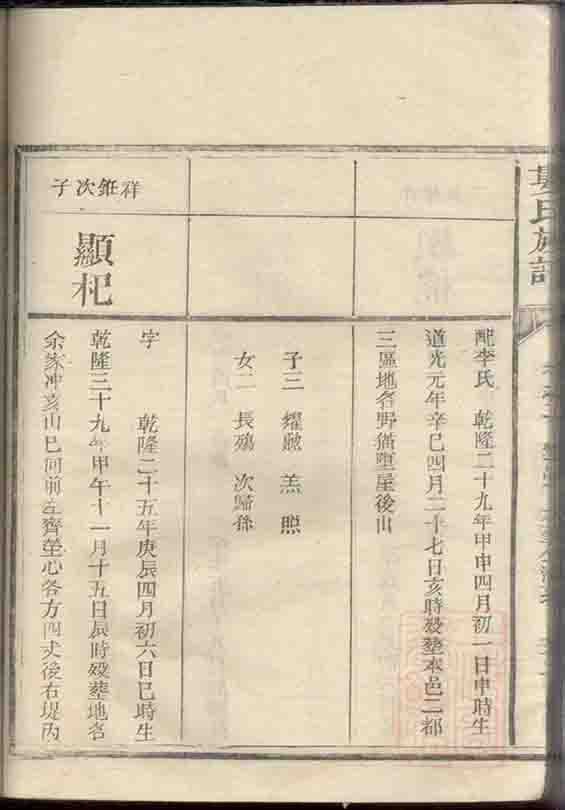 氏族譜
配李氏 乾隆二十九年甲申四月初一日申時生
道光元年辛巳四月二十七日亥時歿塟本邑二都
三區地名野猫墮屋後山
子三 燿 羔 照
女二 長殤 次歸孫
祥 次子
顯杞
字 乾隆二十五年庚辰四月初六日巳時生
乾隆三十九年甲午十一月十五日辰時歿塟地名
余家冲亥山巳向前左齊塋心各方四丈後右堤丙